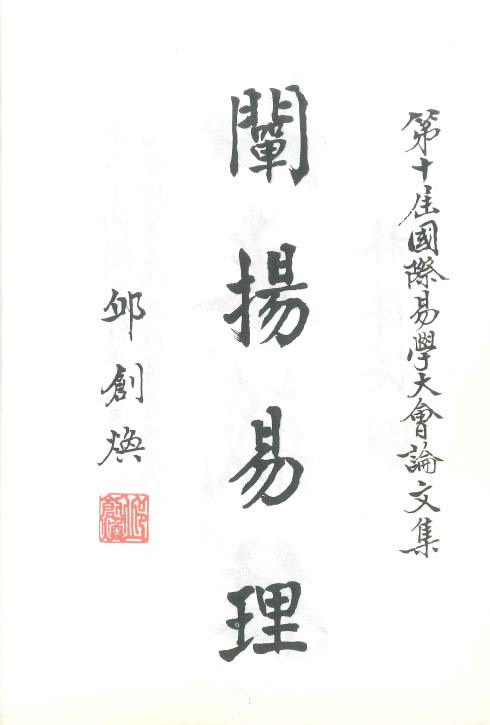 第十屆國際易學大會論文集
闡揚易理
邱創煥